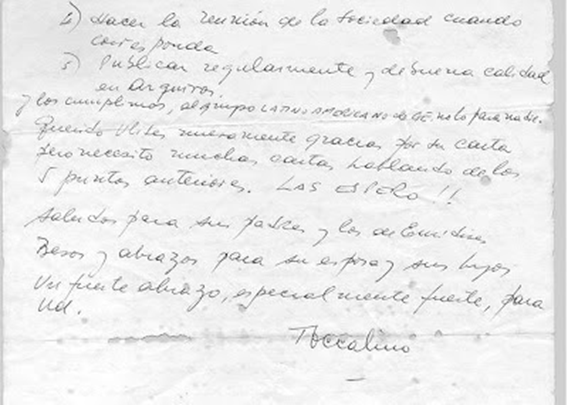 4) Hacer la reunión de la Sociedad cuando
corresponda
5) Publicar regularmente y de buena calidad
en Arquivos.
y los cumplimos, al grupo LATINOAMERICANO de GE no lo para nadie.
Querido Ulises nuevamente gracias por su carta
pero necesito muchas cartas hablando de los
5 puntos anteriores. LAS ESPERO !!
Saludos para sus padres y los de
Besos y abrazos para su esposa y sus hijos
Un fuerte abrazo, especialmente fuerte, para
Ud.
Toccalino